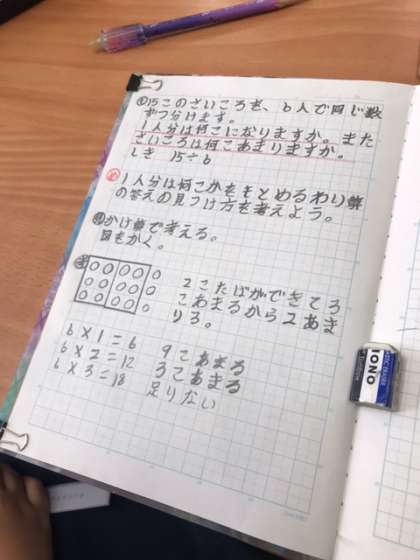 問15このさいころを、6人で同じ数
ずつ分けます。
1人分は何こになりますか。また
さいころは何こあまりますか。
しき 15÷6
め
1人分は何こかをもとめるわり算
の答えの見つけ方を考えよう。
かけ算で考える。
図をかく。
図
2こたばができて3
こあまるから2あま
り3。
6×1=6 9こあまる
6×2=12 3こあまる
6×3=18 足りない
MONO